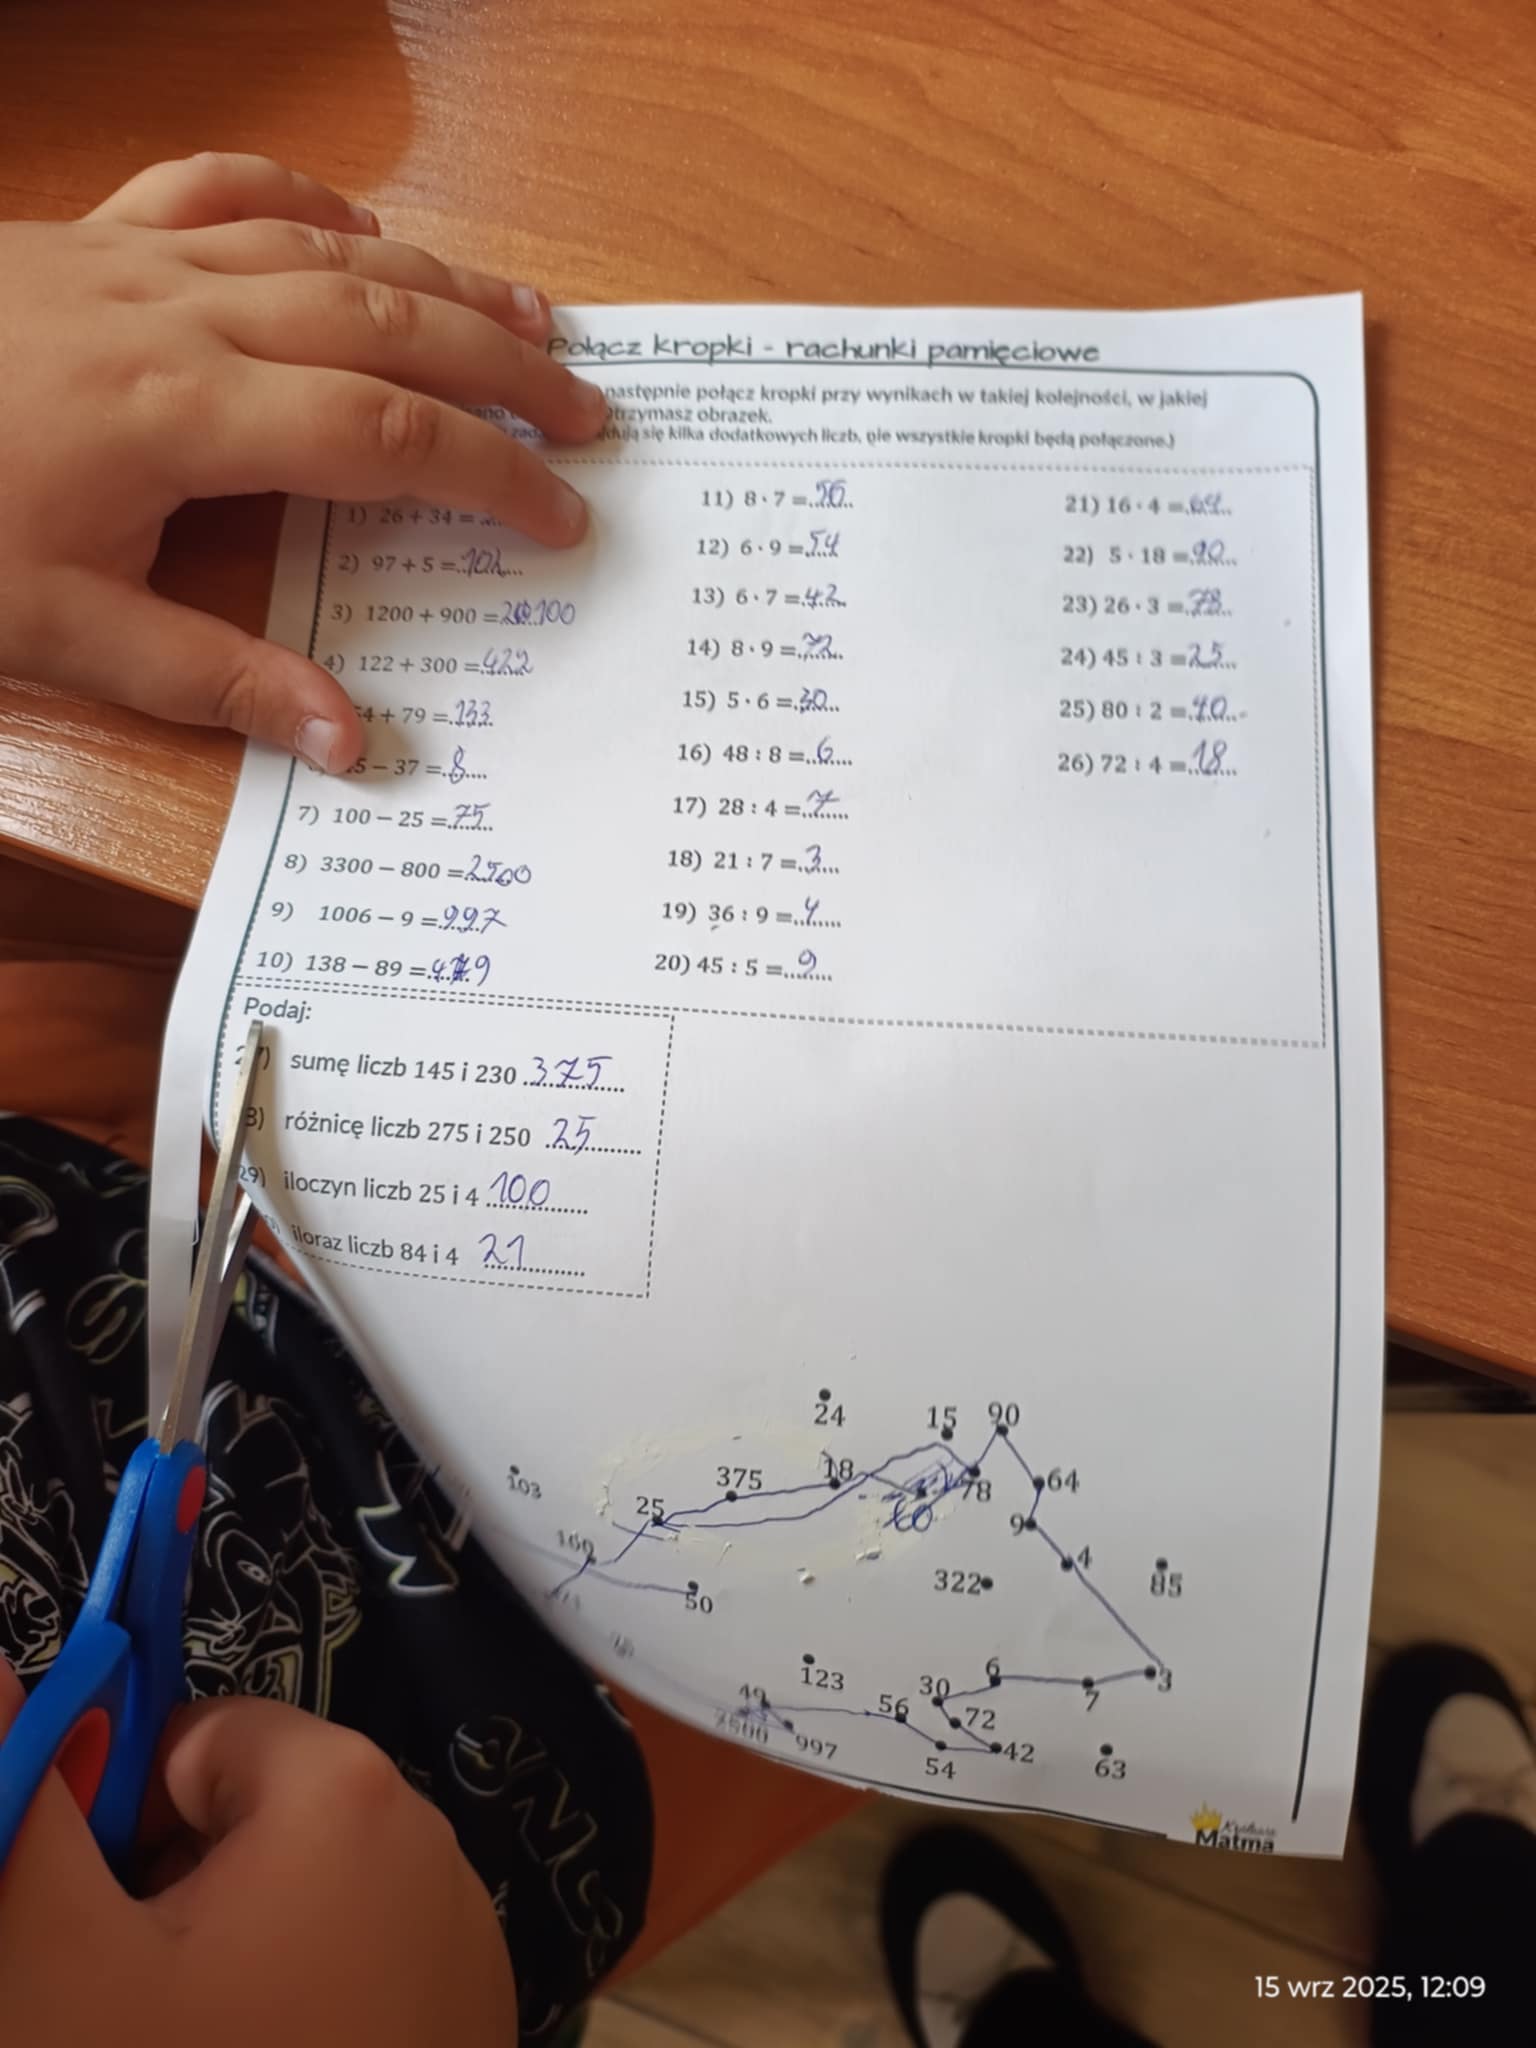 Połącz kropki - rachunki pamięciowe
następnie połącz kropki przy wynikach w takiej kolejności, w jakiej
otrzymasz obrazek.
się kilka dodatkowych liczb, nie wszystkie kropki będą połączone.)
1) 26 + 34 =
2) 97 + 5 = 102
3) 1200 + 900 =
4) 122 + 300 = 422
4 + 79 = 133
5 − 37 = 8
7) 100 − 25 = 75
8) 3300 − 800 = 2500
9) 1006 − 9 = 997
10) 138 − 89 =
11) 8 · 7 = 56
12) 6 · 9 = 54
13) 6 · 7 = 42
14) 8 · 9 = 72
15) 5 · 6 = 30
16) 48 : 8 = 6
17) 28 : 4 = 7
18) 21 : 7 = 3
19) 36 : 9 = 4
20) 45 : 5 = 9
21) 16 · 4 = 64
22) 5 · 18 = 90
23) 26 · 3 = 78
24) 45 : 3 = 25
25) 80 : 2 = 40
26) 72 : 4 = 18
Podaj:
27) sumę liczb 145 i 230 375
8) różnicę liczb 275 i 250 25
29) iloczyn liczb 25 i 4 100
iloraz liczb 84 i 4 21
24
15 90
375 18 78 64
103
25 60 9
4
322 85
50
123 6 3
30 7
49 56 72
2500 997 54 42 63
Królowa
Matma
15 wrz 2025, 12:09